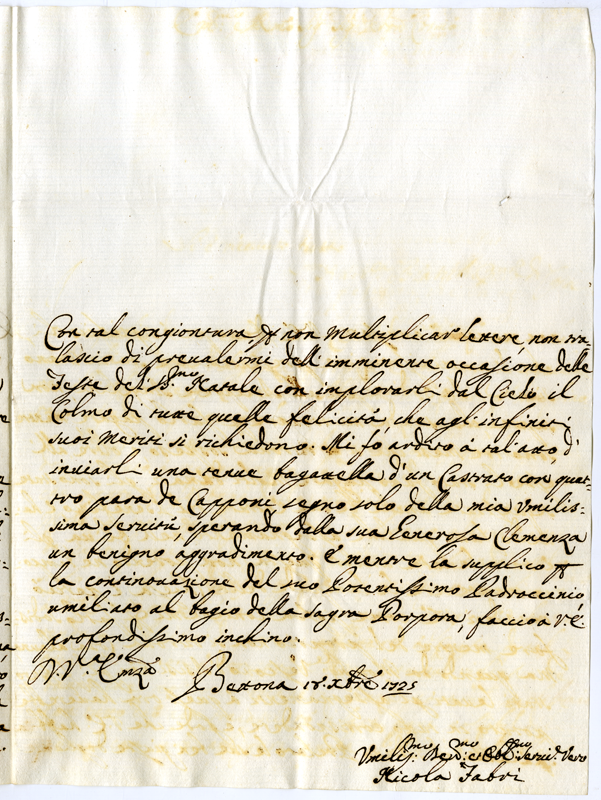 Con tal congiontura, p non multiplicar lettere, non tra-
lascio di prevalermi dell'imminente occasione delle
Feste del S.mo Natale con implorarli dal Cielo il
Colmo di tutte quelle felicità, che agl'infiniti
suoi meriti si richiedono. Mi fò ardito à tal atto, d'
inviarli una tenue bagattella d'un Castrato con quat-
tro para de Capponi segno solo della mia umilis-
sima servitù, sperando dalla sua Generosa Clemenza
un benigno aggradimento. E mentre la supplico p
la continovazione del suo Potentissimo Padroccinio,
umiliato al bagio della Sagra Porpora, faccio à V.E.
profondissimo inchino.
Bettona 18. Xbre 1725
Umiliss:mo Dev:mo et Obl:mo Servid.e Vero
Nicola Fabri